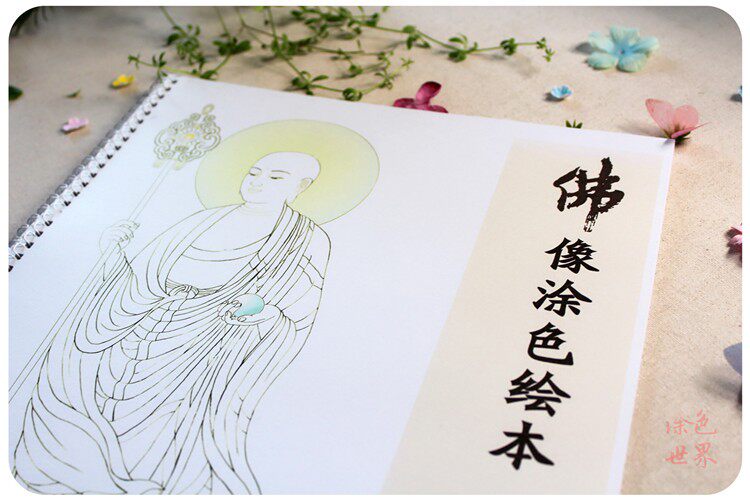 佛像涂色绘本
涂色
世界